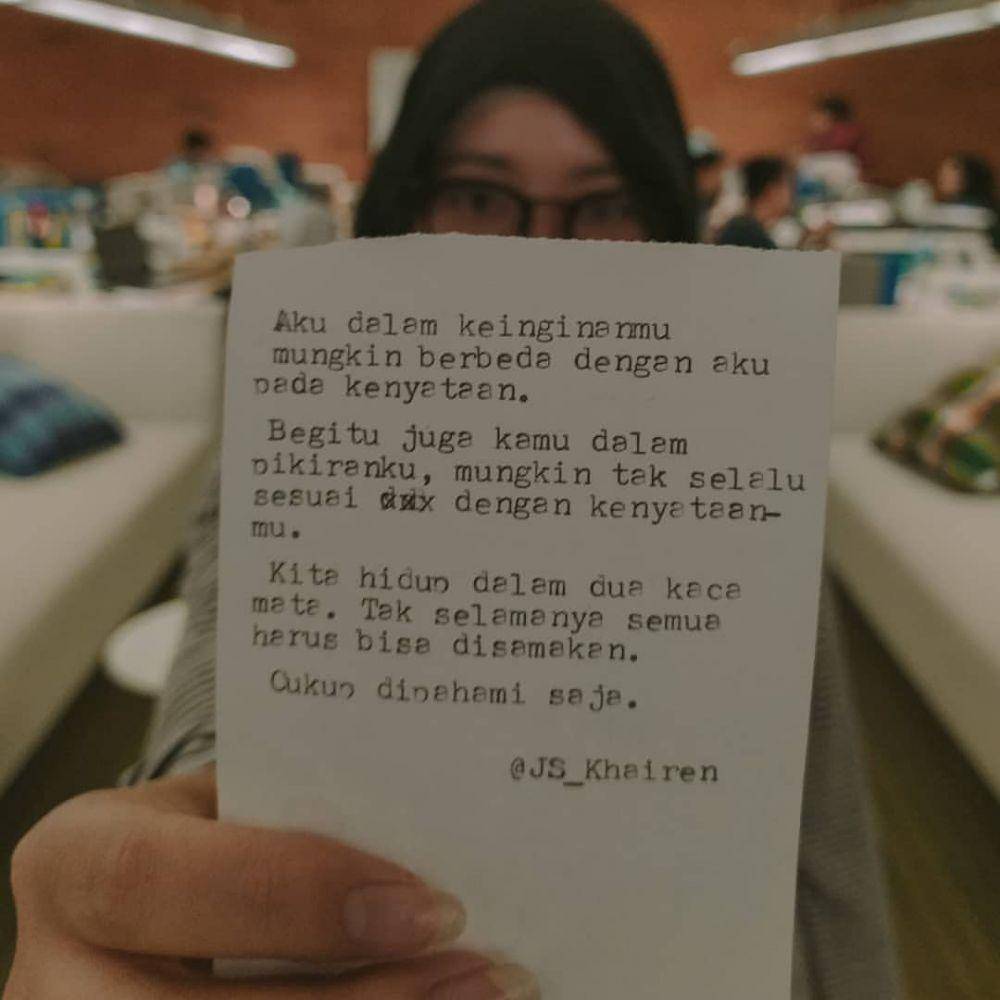 Aku dalam keinginanmu
mungkin berbeda dengan aku
pada kenyataan.
Begitu juga kamu dalam
pikiranku, mungkin tak selalu
sesuai dengan kenyataan-
mu.
Kita hidup dalam dua kaca
mata. Tak selamanya semua
harus bisa disamakan.
Cukup dipahami saja.
@JS_Khairen